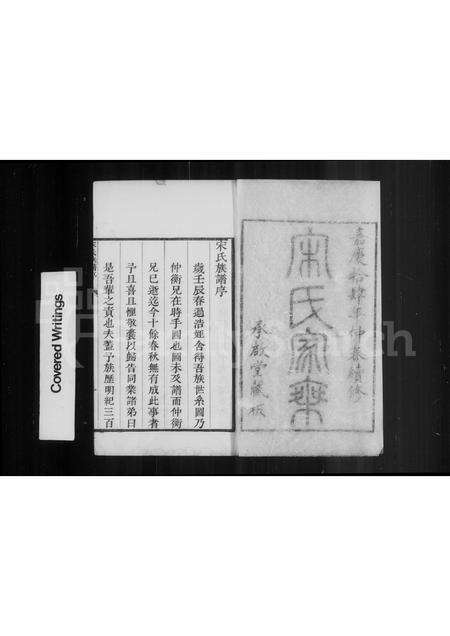 嘉慶拾肆年仲春續修
宋氏家乘
承啟堂藏板
宋氏族譜序
歲壬辰春過浩姪舍待吾族世系圖乃
仲衡兄在時手圖也圖未及譜而仲衡
兄已逝迄今十餘春秋無有成此事者
予且喜且懼敬囊以歸告同業諸弟曰
是吾輩之責也夫蓋予族歷明紀三百
Covered Writings